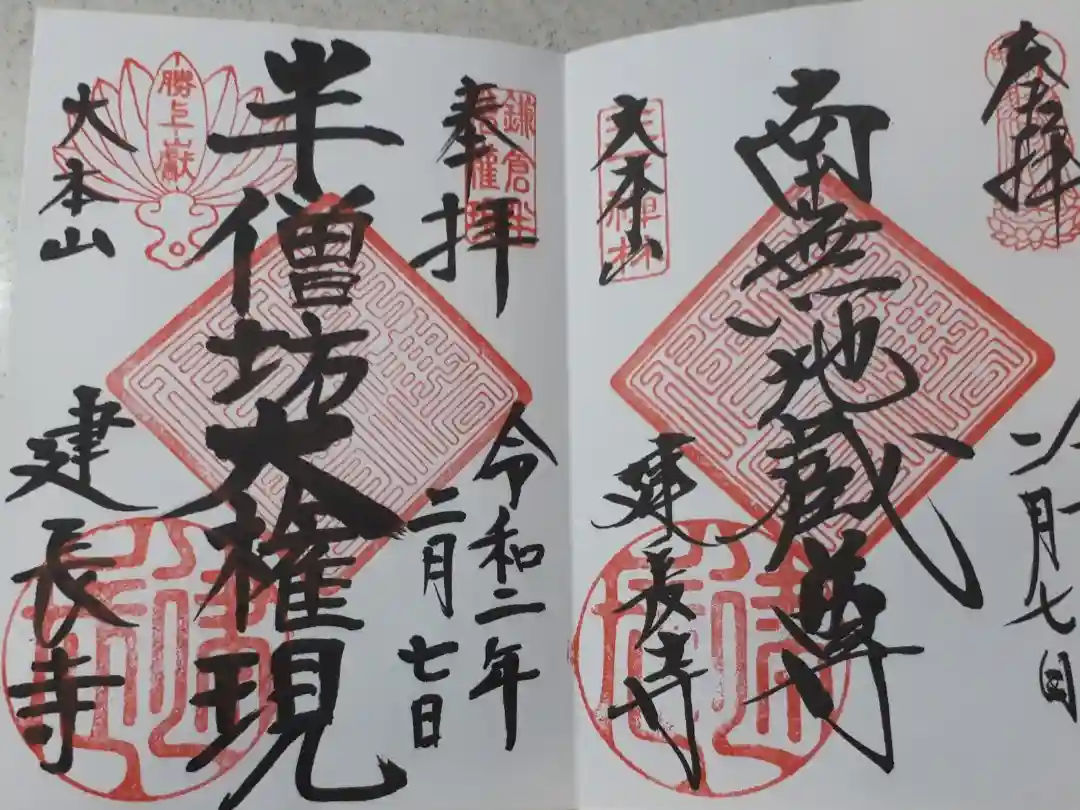 奉拝
二月七日
南無地蔵尊
大本山
建長寺
奉拝
令和二年
二月七日
半僧坊大権現
大本山
建長寺
勝上嶽